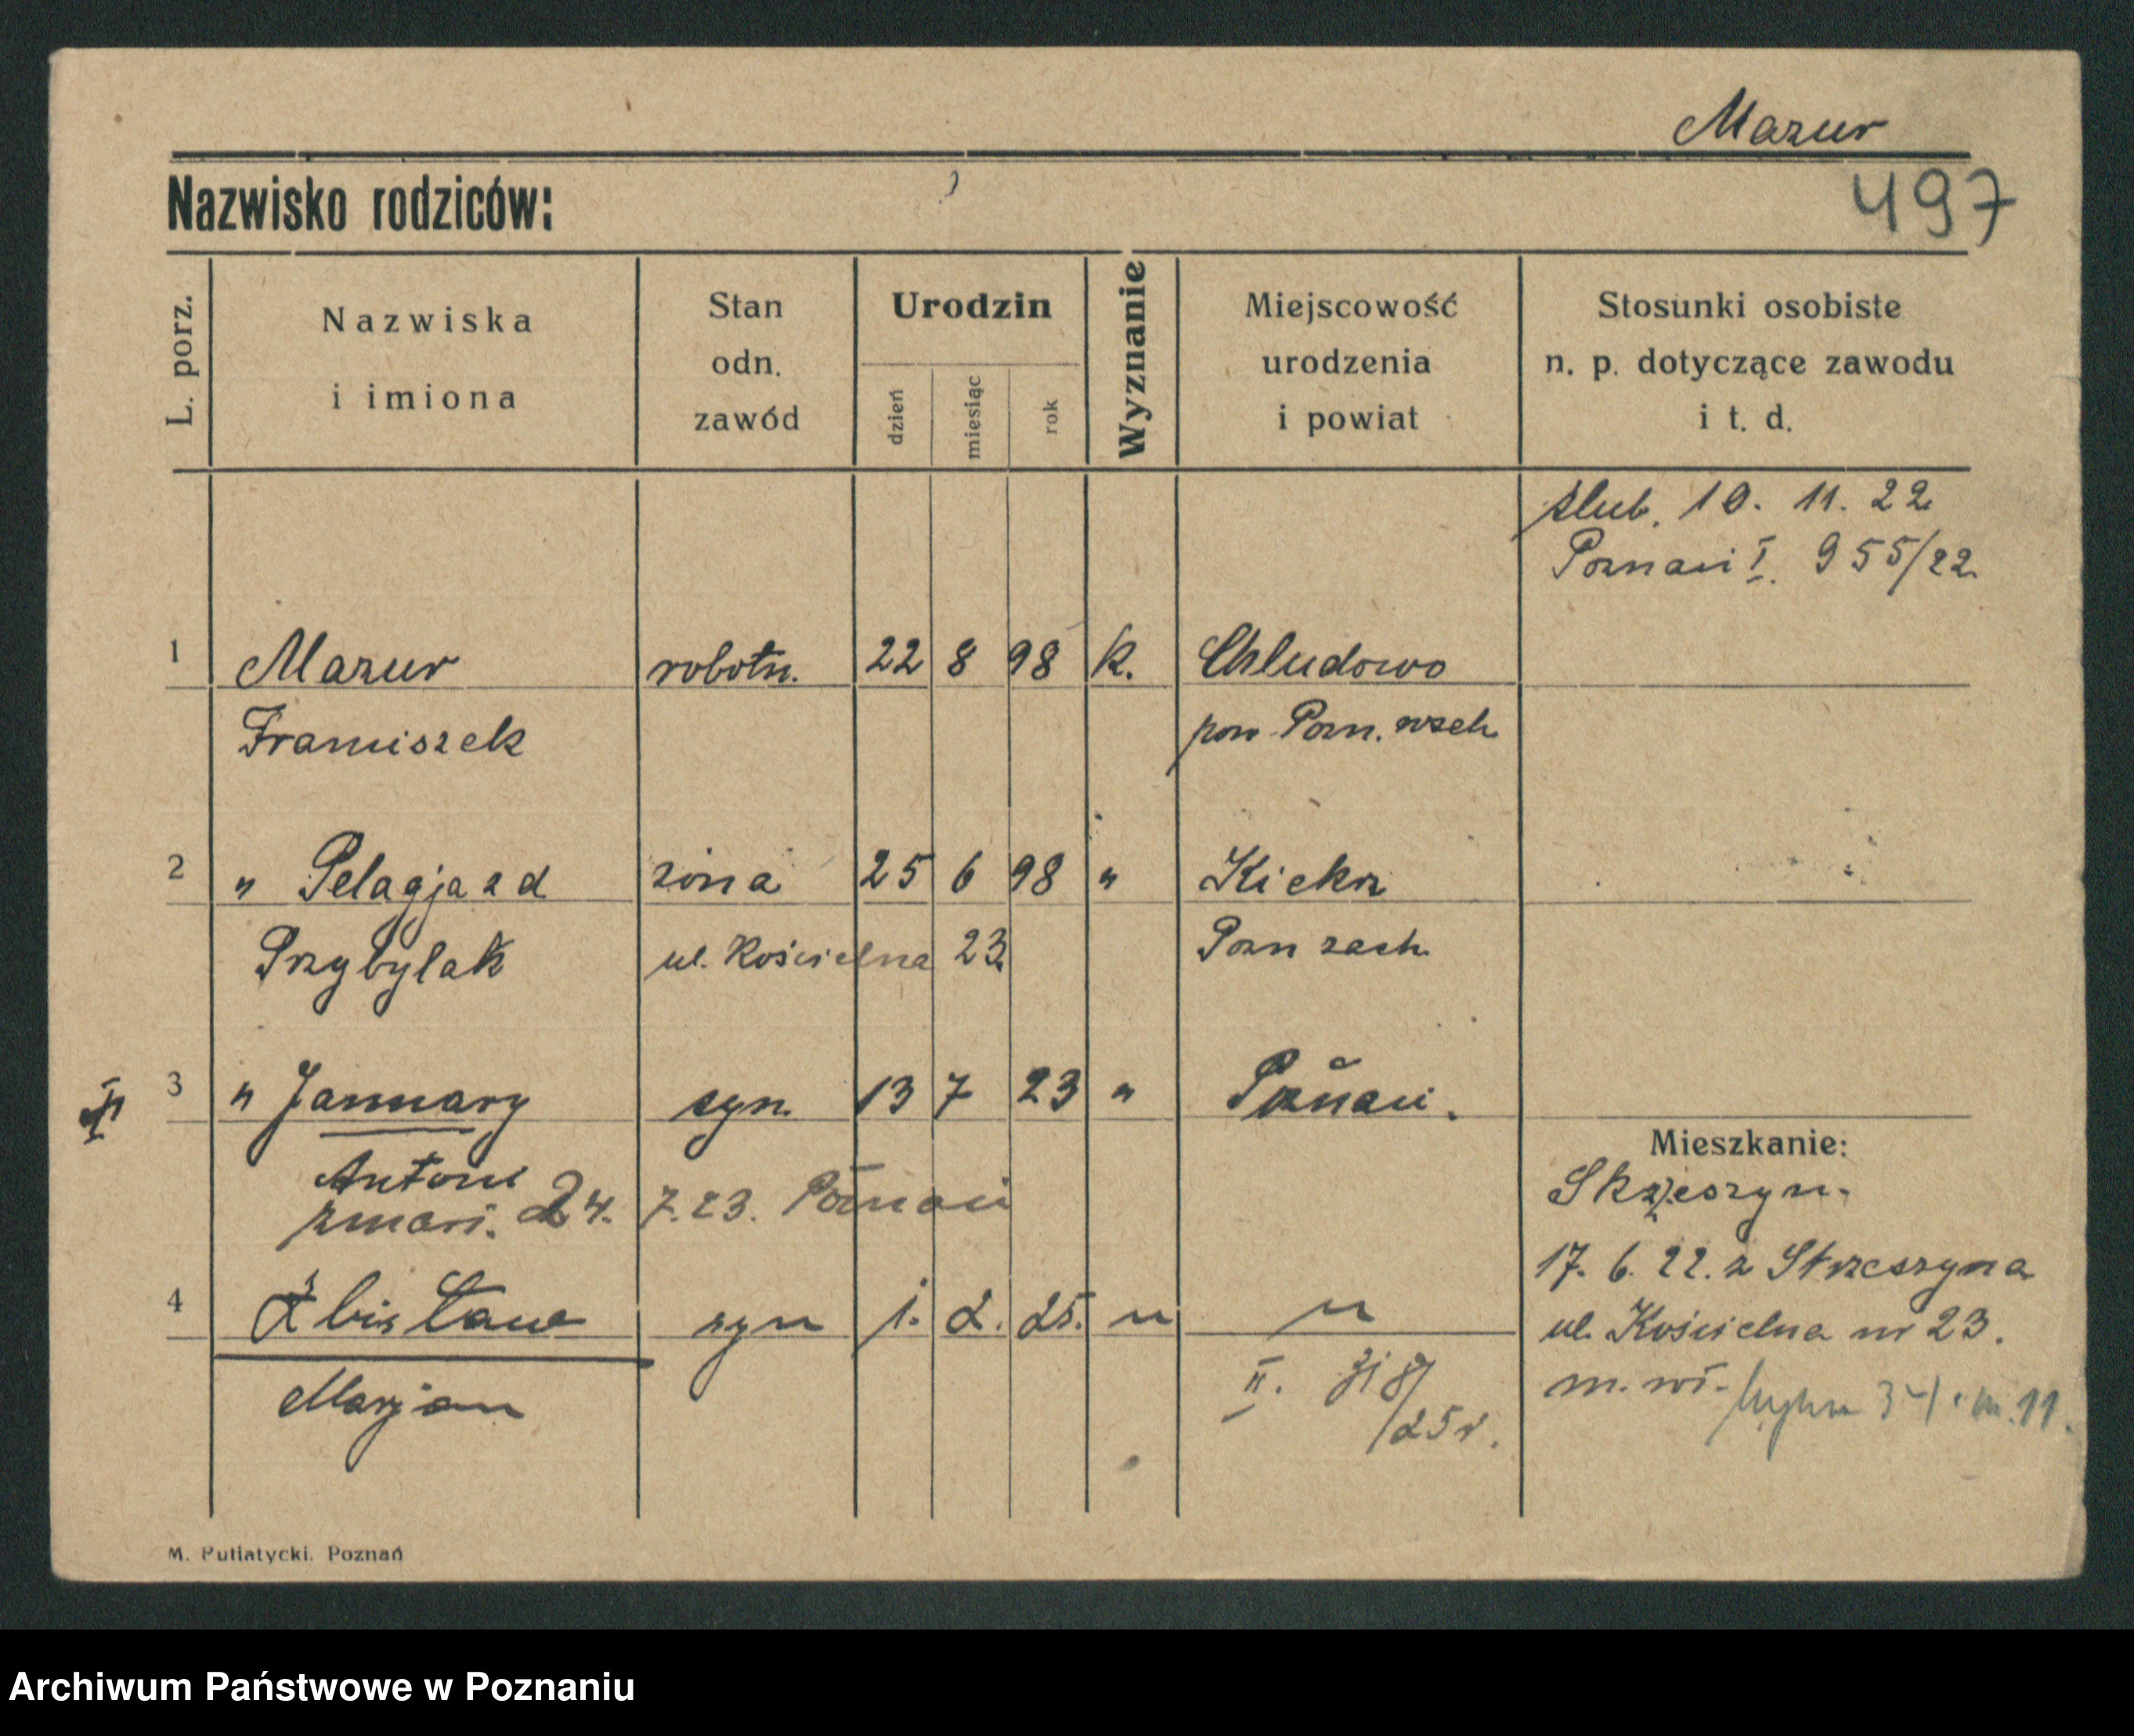 Mazur
Nazwisko rodziców:
497
L. porz.
Nazwiska
i imiona
Stan
odn.
zawód
Urodzin
dzień
miesiąc
rok
Wyznanie
Miejscowość
urodzenia
i powiat
Stosunki osobiste
n. p. dotyczące zawodu
i t. d.
ślub. 10. 11. 22
Poznań I. 955/22
1 Mazur robotn. 22 8 98 k. Chludowo
Franciszek pow Pozn. wsch.
2 " Pelagja z d żona 25 6 98 " Kiekrz
Przybylak ul. Kościelna 23. Pozn zach.
3 " January syn 13 7 23 " Poznań.
Antoni
zmarł. 24. 7. 23. Poznań
Mieszkanie:
Skrzeszyn.
17. 6. 22. z Strzeszyna
4 syn 1. 2. 25. " "
ul. Kościelna nr 23.
Marjan
II. 318/25r.
m. wł. 34. m. 11.
M. Putiatycki. Poznań
Archiwum Państwowe w Poznaniu